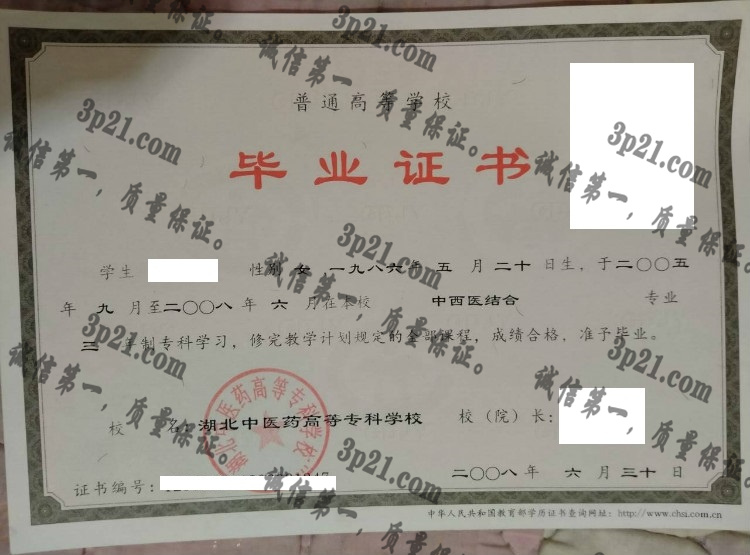 普通高等学校
毕业证书
学生 性别 女 一九八六年 五 月 二十 日生，于二〇〇五
年 九 月至二〇〇八 年 六 月在本校 中西医结合 专业
三 年制专科学习，修完教学计划规定的全部课程，成绩合格，准予毕业。
校 名：湖北中医药高等专科学校 校（院）长：
二〇〇八 年 六 月 三十 日
证书编号：
中华人民共和国教育部学历证书查询网址：http://www.chsi.com.cn
湖北中医药高等专科学校
3p21.com
诚信第一，质量保证。
3p21.com
诚信第一，质量保证。
3p21.com
诚信第一，质量保证。
3p21.com
诚信第一，质量保证。
3p21.com
诚信第一，质量保证。
3p21.com
诚信第一，质量保证。
3p21.com
诚信第一，质量保证。